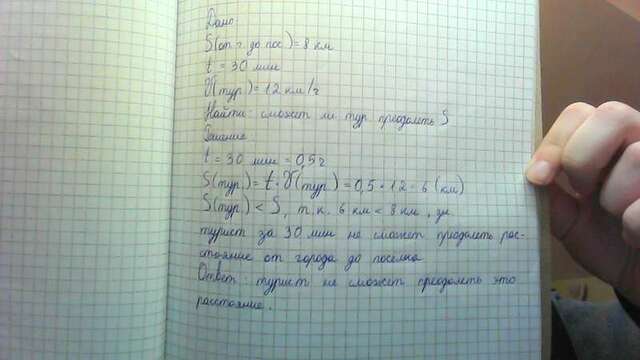 Дано:
S(от г. до пос)=8 км
t = 30 мин
V(тур.)=12 км/ч
Найти: сможет ли тур. преодолеть S
Решение:
t = 30 мин = 0,5 ч
S(тур.)= t · V(тур.) = 0,5 · 12 = 6 (км)
S(тур.) < S, т.к. 6 км < 8 км, зн.
турист за 30 мин не сможет преодолеть рас-
стояние от города до поселка
Ответ: турист не сможет преодолеть это
расстояние.